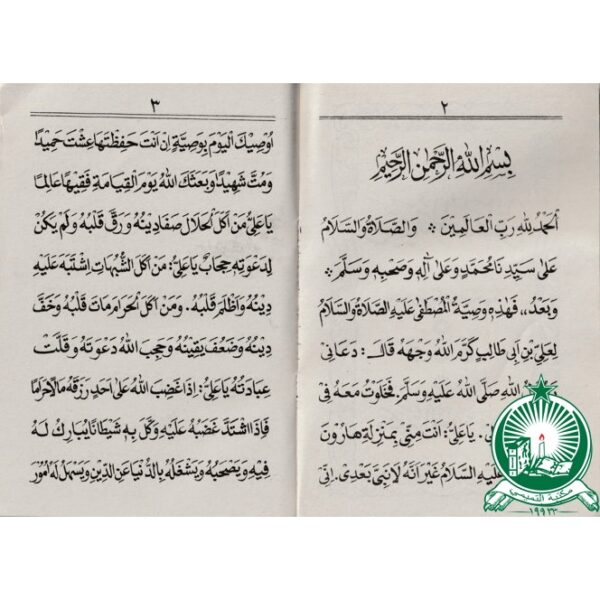 ٢
بِسْمِ اللهِ الرَّحْمٰنِ الرَّحِيْمِ
اَلْحَمْدُ لِلهِ رَبِّ الْعَالَمِيْنَ * وَالصَّلَاةُ وَالسَّلَامُ
عَلَى سَيِّدِنَا مُحَمَّدٍ وَعَلَى آلِهِ وَصَحْبِهِ وَسَلَّمَ *
وَبَعْدُ،، فَهٰذِهِ وَصِيَّةُ الْمُصْطَفَى عَلَيْهِ الصَّلَاةُ وَالسَّلَامُ
لِعَلِيِّ بْنِ اَبِى طَالِبٍ كَرَّمَ اللهُ وَجْهَهُ قَالَ: دَعَانِى
اللهِ صَلَّى اللهُ عَلَيْهِ وَسَلَّمَ. فَخَلَوْتُ مَعَهُ فِى
يَاعَلِيُّ: اَنْتَ مِنِّى بِمَنْزِلَةِ هَارُوْنَ
عَلَيْهِ السَّلَامُ غَيْرَ اَنَّهُ لَا نَبِيَّ بَعْدِى. اِنِّى
٣
اُوْصِيْكَ الْيَوْمَ بِوَصِيَّةٍ اِنْ اَنْتَ حَفِظْتَهَا عِشْتَ حَمِيْدًا
وَمُتَّ شَهِيْدًا وَبَعَثَكَ اللهُ يَوْمَ الْقِيَامَةِ فَقِيْهًا عَالِمًا
يَاعَلِيُّ: مَنْ اَكَلَ الْحَلَالَ صَفَا دِيْنُهُ وَرَقَّ قَلْبُهُ وَلَمْ يَكُنْ
لِدَعْوَتِهِ حِجَابٌ يَاعَلِيُّ: مَنْ اَكَلَ الشُّبُهَاتِ اِشْتَبَهَ عَلَيْهِ
دِيْنُهُ وَاَظْلَمَ قَلْبُهُ. وَمَنْ اَكَلَ الْحَرَامَ مَاتَ قَلْبُهُ وَخَفَّ
دِيْنُهُ وَضَعُفَ يَقِيْنُهُ وَحَجَبَ اللهُ دَعْوَتَهُ وَقَلَّتْ
عِبَادَتُهُ يَاعَلِيُّ: اِذَا غَضِبَ اللهُ عَلَى اَحَدٍ رَزَقَهُ مَالًا حَرَامًا
فَاِذَا اشْتَدَّ غَضَبُهُ عَلَيْهِ وَكَّلَ بِهِ شَيْطَانًا يُبَارِكُ لَهُ
فِيْهِ وَيَصْحَبُهُ وَيَشْغَلُهُ بِالدُّنْيَا عَنِ الدِّيْنِ وَيُسَهِّلُ لَهُ اُمُوْرَ
١٩٩٣